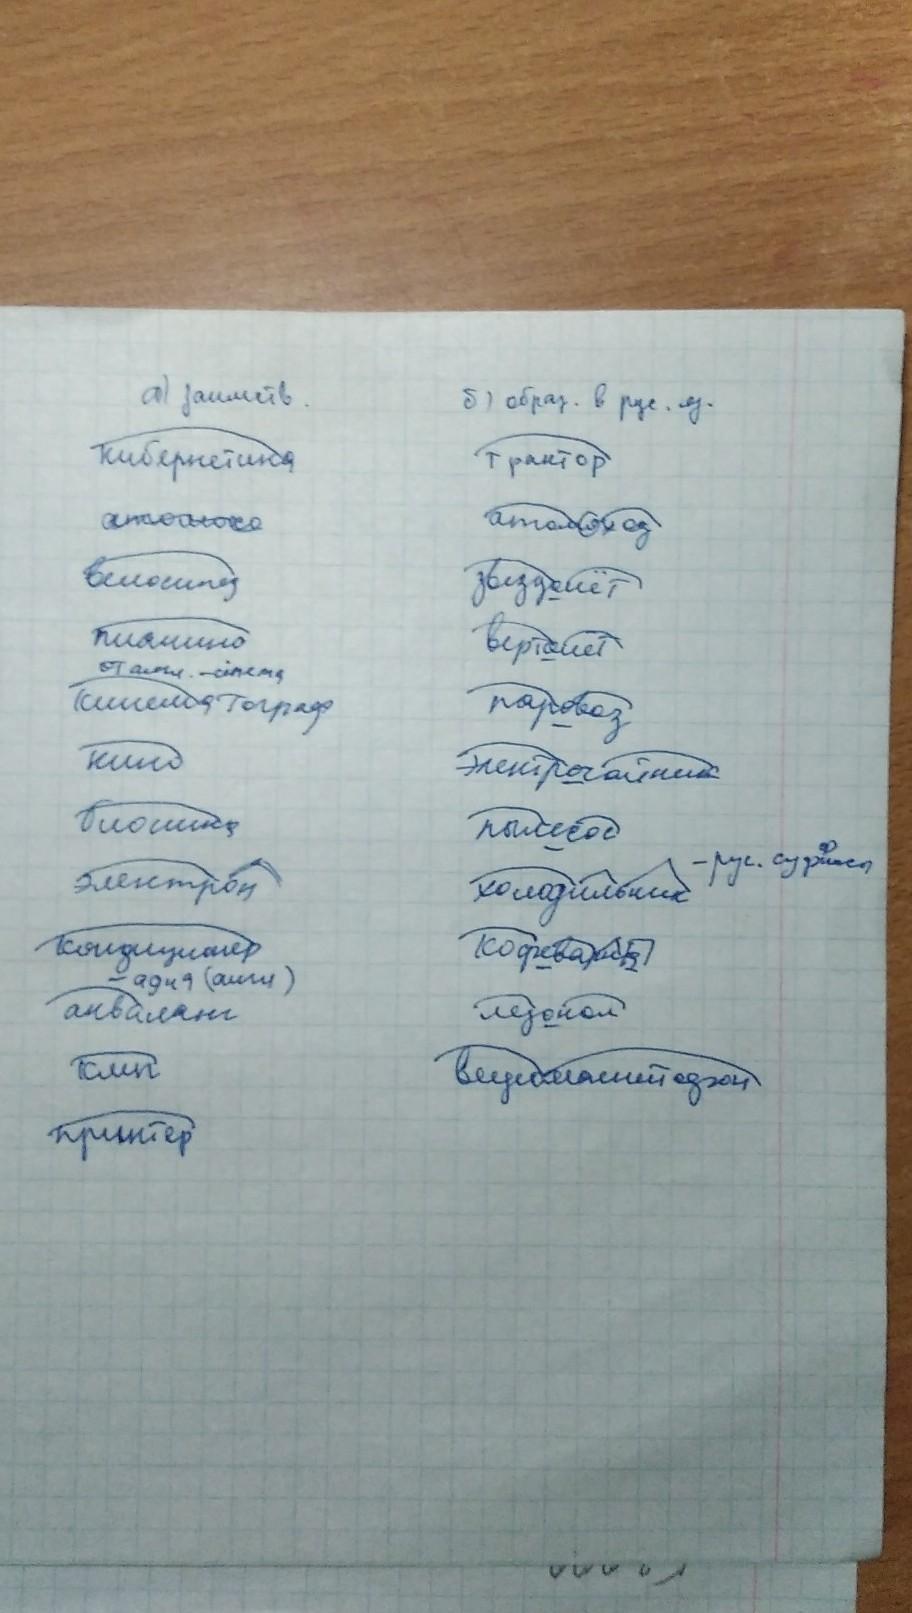 а) заимств.
кибернетика
велосипед
пианино
от англ. -синема
кинематограф
кино
блесина
электрон
кондиционер
- aqua (англ)
акваланг
клип
принтер
б) образ. в рус. яз.
трактор
атомоход
звездолёт
вертолет
паровоз
электрочайник
пылесос
холодильник - рус. суффиксы
кофеварка
ледокол
видеомагнитофон